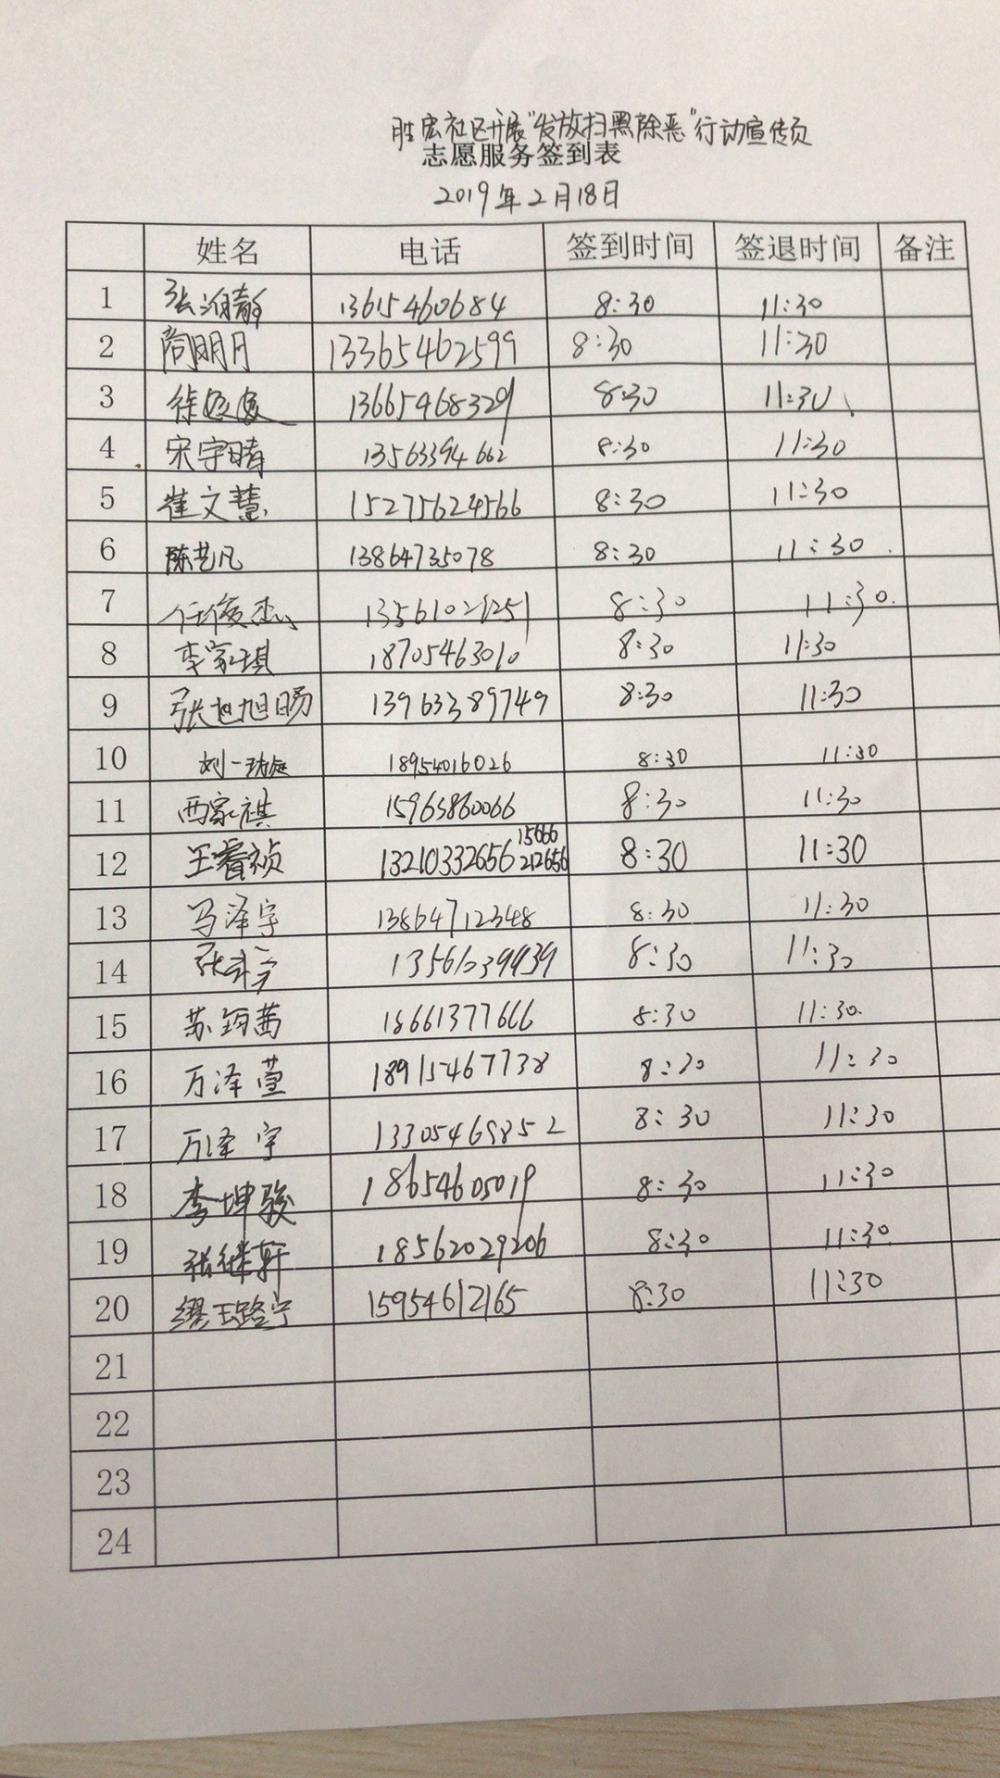 胜宏社区开展"发放扫黑除恶"行动宣传员
志愿服务签到表
2019年2月18日
姓名 电话 签到时间 签退时间 备注
1 张 13615460684 8:30 11:30
2 尚明月 13365462599 8:30 11:30
3 徐 13665468329 8:30 11:30
4 宋宇晴 13563394662 8:30 11:30
5 崔文慧 15275624566 8:30 11:30
6 陈艺凡 13864735078 8:30 11:30
7 任俊杰 8:30 11:30
8 李家琪 18705463010 8:30 11:30
9 张旭旭旸 13963389749 8:30 11:30
10 刘一 18954016026 8:30 11:30
11 西家祺 15963860066 8:30 11:30
12 王睿祯 13210332656 15666212656 8:30 11:30
13 马泽宇 13864712348 8:30 11:30
14 张 13561039939 8:30 11:30
15 苏钰茜 18661377666 8:30 11:30
16 万泽萱 18915467738 8:30 11:30
17 万泽宇 13305469852 8:30 11:30
18 李坤骏 18654605019 8:30 11:30
19 张继轩 18562029206 8:30 11:30
20 缪玉路宁 15954612165 8:30 11:30
21
22
23
24